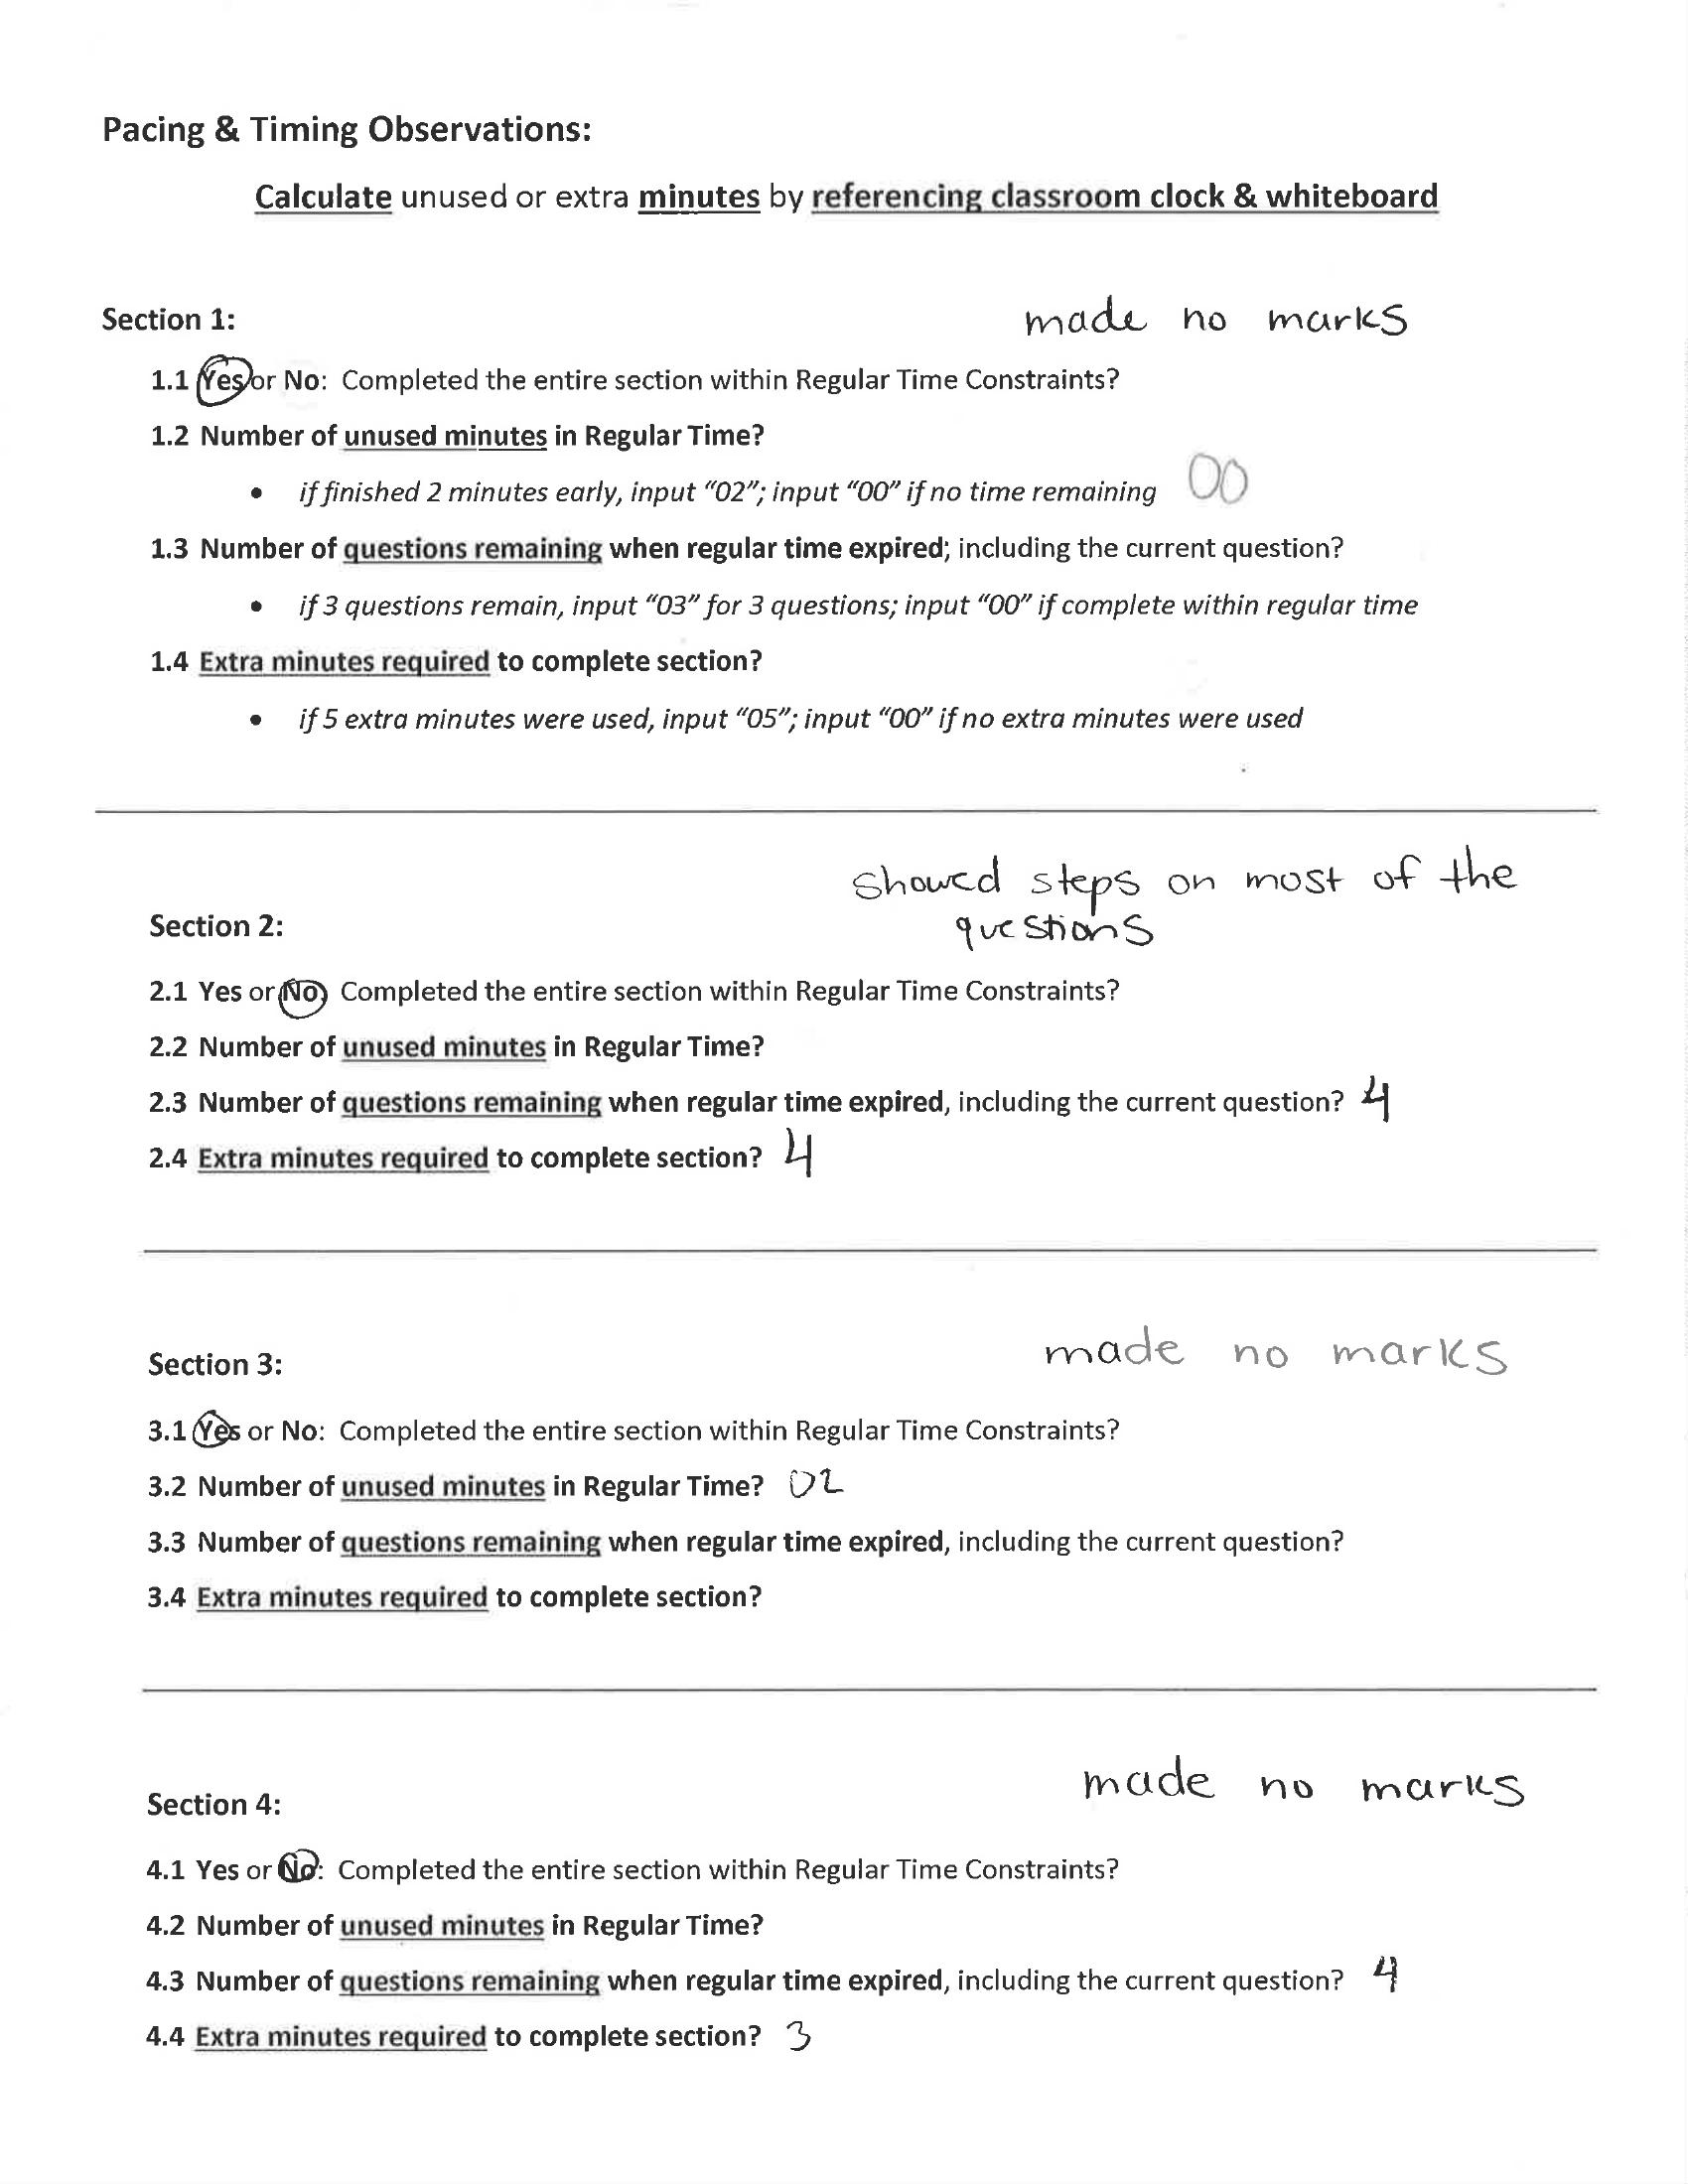 Pacing & Timing Observations:
Calculate unused or extra minutes by referencing classroom clock & whiteboard
Section 1:
made no marks
1.1 Yes or No: Completed the entire section within Regular Time Constraints?
1.2 Number of unused minutes in Regular Time?
• if finished 2 minutes early, input “02”; input “00” if no time remaining 00
1.3 Number of questions remaining when regular time expired; including the current question?
• if 3 questions remain, input “03” for 3 questions; input “00” if complete within regular time
1.4 Extra minutes required to complete section?
• if 5 extra minutes were used, input “05”; input “00” if no extra minutes were used
showed steps on most of the
questions
Section 2:
2.1 Yes or No Completed the entire section within Regular Time Constraints?
2.2 Number of unused minutes in Regular Time?
2.3 Number of questions remaining when regular time expired, including the current question? 4
2.4 Extra minutes required to complete section? 4
made no marks
Section 3:
3.1 Yes or No: Completed the entire section within Regular Time Constraints?
3.2 Number of unused minutes in Regular Time? 02
3.3 Number of questions remaining when regular time expired, including the current question?
3.4 Extra minutes required to complete section?
made no marks
Section 4:
4.1 Yes or No: Completed the entire section within Regular Time Constraints?
4.2 Number of unused minutes in Regular Time?
4.3 Number of questions remaining when regular time expired, including the current question? 4
4.4 Extra minutes required to complete section? 3